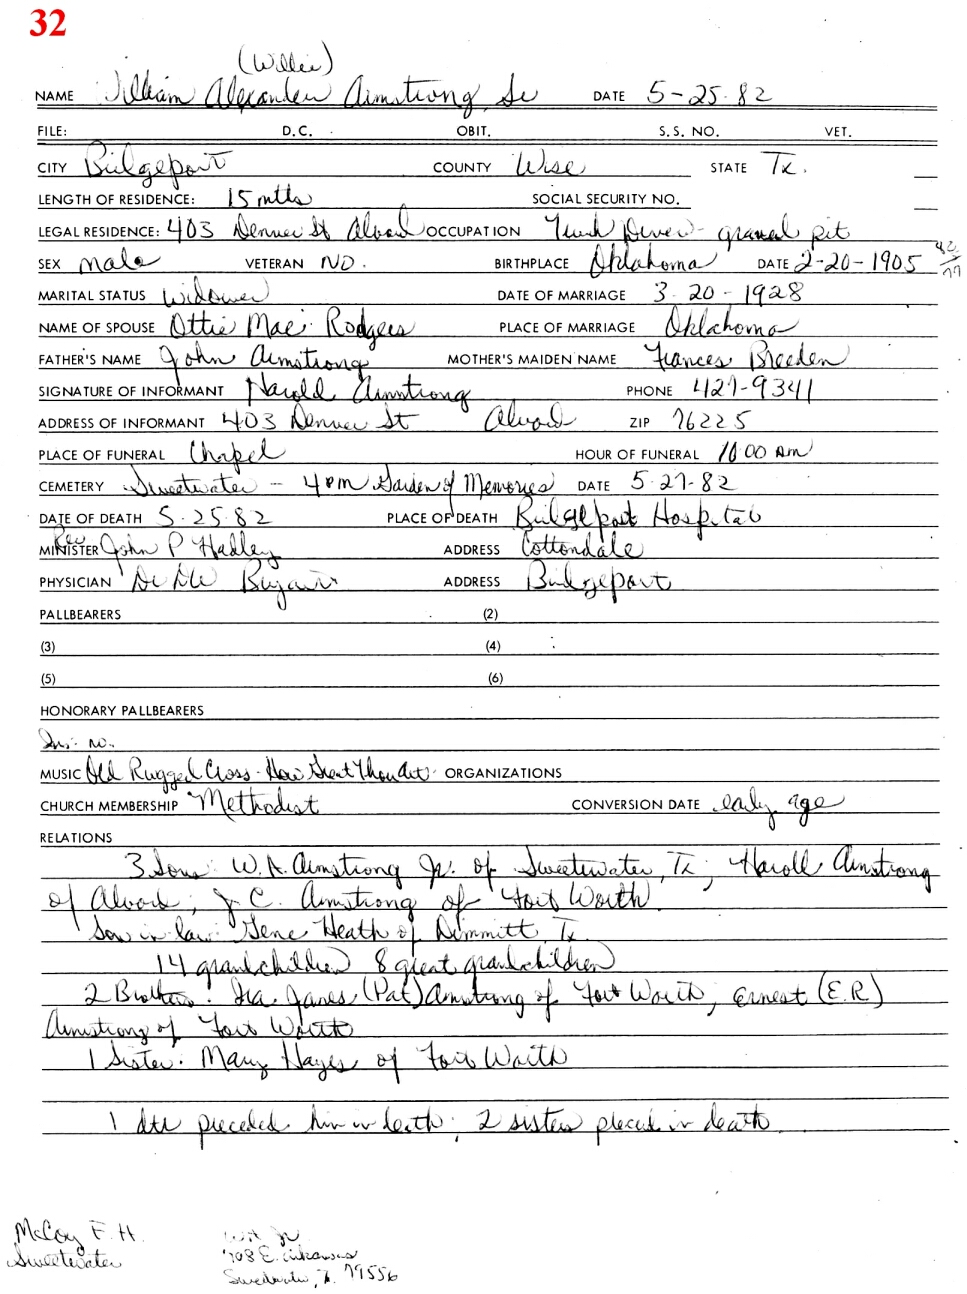 32
(Willie)
NAME William Alexander Armstrong, Sr DATE 5-25-82
FILE: D.C. OBIT. S.S. NO. VET.
CITY Bridgeport COUNTY Wise STATE Tx.
LENGTH OF RESIDENCE: 15 mths SOCIAL SECURITY NO.
LEGAL RESIDENCE: 403 Denver St Alvord OCCUPATION Truck Driver - gravel pit
SEX male VETERAN NO. BIRTHPLACE Oklahoma DATE 2-20-1905
77
MARITAL STATUS Widower DATE OF MARRIAGE 3-20-1928
NAME OF SPOUSE Ottie Mae Rodgers PLACE OF MARRIAGE Oklahoma
FATHER'S NAME John Armstrong MOTHER'S MAIDEN NAME Frances Breeden
SIGNATURE OF INFORMANT Harold Armstrong PHONE 427-9341
ADDRESS OF INFORMANT 403 Denver St Alvord ZIP 76225
PLACE OF FUNERAL Chapel HOUR OF FUNERAL 10 00 am
CEMETERY Sweetwater - 4 pm Garden of Memories DATE 5-27-82
DATE OF DEATH 5-25-82 PLACE OF DEATH Bridgeport Hospital
MINISTER Rev John P Hadley ADDRESS Cottondale
PHYSICIAN Dr DW ADDRESS Bridgeport
PALLBEARERS (2)
(3) (4)
(5) (6)
HONORARY PALLBEARERS
Ins: no.
MUSIC Old Rugged Cross - How Great Thou Art ORGANIZATIONS
CHURCH MEMBERSHIP Methodist CONVERSION DATE early age
RELATIONS
3 Sons: W.A. Armstrong Jr. of Sweetwater, Tx; Harold Armstrong
of Alvord; J. C. Armstrong of Fort Worth
Son in law: Gene Heath of Dimmitt, Tx
14 grandchildren 8 great grandchildren
2 Brothers: Ira James (Pat) Armstrong of Fort Worth; Ernest (E.R.)
Armstrong of Fort Worth
1 Sister: Mary Hayes of Fort Worth
1 dtr preceded him in death; 2 sisters preced in death
McCoy F. H.
Sweetwater
WA Jr.
708 E. Arkansas
Sweetwater, Tx. 79556